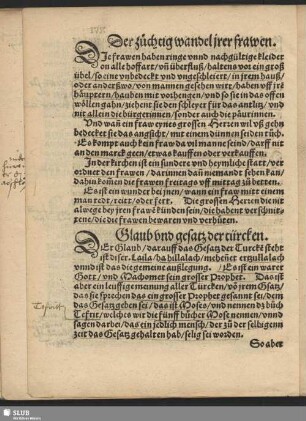 Der züchtig wandel jrer frawen.
Die frawen haben ringe vnnd nachgültige kleider
on alle hoffart/ vñ überfluß/ haltens vor ein groß
übel/ so eine vnbedeckt vnd vngeschleiert/ in jrem hauß/
oder anderßwo/ von mannen gesehen wirt/ haben vff jrẽ
häuptern/ hauben mit vorhengen/ vnd so sie in das offen
wöllen gahn/ ziehent sie den schleyer für das antlitz/ vnd
nit allein die bürgerinnen/ sonder auch die päurinnen.
Vnd wañ ein fraw eynes grossen Herren wil vß gehn
bedecket sie das angsicht/ mit einem dünnen seidin tůch.
Es kompt auch kein fraw da vil manne seind/ darff nit
an den marck geen/ etwas kauffen oder verkauffen.
In der kirchen ist ein sundere vnd heymliche statt/ ver
ordnet den frawen/ darinnen dañ niemandt sehen kan/
dahin komẽ die frawen freitags vff mittag zů betten.
Es ist ein wunder bei jnen/ wann ein fraw mitt einem
man redt/ reitt/ oder fert. Die grossen Herren die nit
alwege bey jren frawẽ künden sein/ die habent verschnit-
tene/ die die frawen bewaren vnd verhüten.
Glaub vnd gesatz der türcken.
Der Glaub/ darauff das Gesatz der Türcken steht
ist diser. Laila/ hahillalach/ mehemet ertzullalach
vnnd ist das die gemeine außlegung. Es ist ein warer
Gott/ vnd Machomet sein grosser Prophet. Das ist
aber ein leüffig meinung aller Türcken/ võ jrem Gsatz/
das sie sprechen das ein grosser Prophet gesannt sei/ dem
das Gesatz geben sei/ das ist Moses/ vnd nennen dz bůch
Tefrit/ welches wir die fünff bücher Mose nennen/ vnnd
sagen darbei/ das ein jedlich mensch/ der zů der selbigenn
zeit das Gesatz gehalten hab/ selig sei worden.
So aber
SLUB